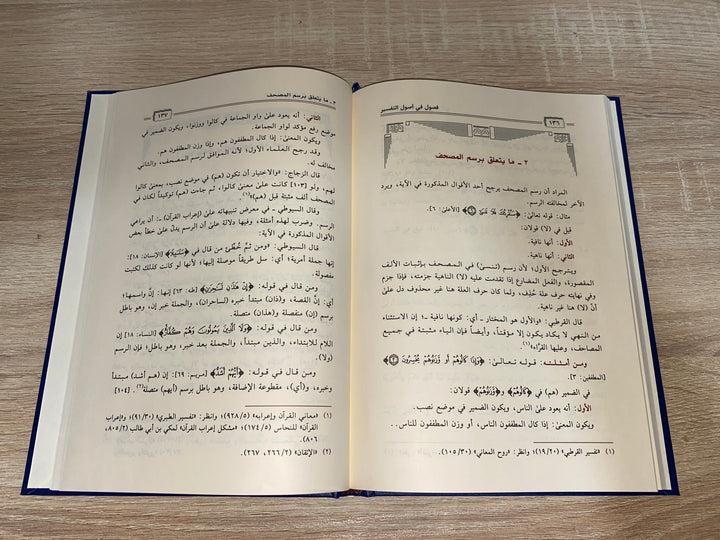 فصول في أصول التفسير
١٣٦
٢ - ما يتعلق برسم المصحف
المراد أن رسم المصحف يرجح أحد الأقوال المذكورة في الآية، ويرد
الآخر لمخالفته الرسم.
مثال: قوله تعالى: ﴿سَنُقْرِئُكَ فَلَا تَنسَىٰ ۝٦﴾ [الأعلى: ٦].
قيل في (لا) قولان:
الأول: أنها نافية.
الثاني: أنها ناهية.
ويترجح الأول؛ لأن رسم (تنسىٰ) في المصحف بإثبات الألف
المقصورة، والفعل المضارع إذا تقدمت عليه (لا) الناهية جزمته، فإذا جزم
وفي نهايته حرف علة حُذِف، ولما كان حرف العلة هنا غير محذوف دل علىٰ
أنَّ (لا) هنا غير ناهية.
قال القرطبي: «والأول هو المختار - أي: كونها نافية -؛ إن الاستثناء
من النهي لا يكاد يكون إلا مؤقتاً، وأيضاً فإن الياء مثبتة في جميع
المصاحف، وعليها القرَّاء»(١).
ومن أمثلته: قوله تعالىٰ: ﴿وَإِذَا كَالُوهُمْ أَو وَّزَنُوهُمْ يُخْسِرُونَ ۝٣﴾
[المطففين: ٣].
في الضمير (هم) في ﴿كَالُوهُمْ﴾ و﴿وَّزَنُوهُمْ﴾ قولان:
الأول: أنه يعود علىٰ الناس، ويكون الضمير في موضع نصب.
ويكون المعنىٰ: إذا كال المطففون الناس، أو وزن المطففون للناس..
(١) «تفسير القرطبي» (١٩/٢٠)؛ وانظر: «روح المعاني» (٣٠/١٠٥).
٢ - ما يتعلق برسم المصحف
١٣٧
الثاني: أنه يعود علىٰ واو الجماعة في كالوا ووزنوا، ويكون الضمير في
موضع رفع مؤكد لواو الجماعة.
ويكون المعنىٰ: إذا كال المطففون هم، وإذا وزن المطففون هم.
وقد رجح العلماء الأول؛ لأنه الموافق لرسم المصحف، والثاني
مخالف له.
قال الزجاج: «والاختيار أن تكون (هم) في موضع نصب، بمعنىٰ كالوا
لهم، ولو [١٠٣] كانت علىٰ معنىٰ كالوا، ثم جاءت (هم) توكيداً لكان في
المصحف ألف مثبتة قبل (هم)»(١).
وقال السيوطي - في معرض تنبيهاته علىٰ (إعراب القرآن) -: أن يراعي
الرسم. وضرب لهذه أمثلة، وفيها دلالة علىٰ أن الرسم يدلّ علىٰ خطأ بعض
الأقوال المذكورة في الآية:
قال السيوطي: «ومن ثَمَّ خُطِّئ من قال في ﴿سَلْسَبِيلًا﴾ [الإنسان: ١٨]:
إنها جملة أمرية؛ أي: سل طريقاً موصلة إليها؛ لأنها لو كانت كذلك لكتبت
منفصلة.
ومن قال في قوله: ﴿إِنْ هَٰذَانِ لَسَاحِرَانِ﴾ [طه: ٦٣] إنها: إنَّ واسمها؛
أي: إنَّ القصة، و(ذان) مبتدأ خبره (لساحران)، والجملة خبر إن، وهو باطل
برسم (إن) منفصلة، و(هذان) متصلة.
ومن قال في قوله: ﴿وَلَا الَّذِينَ يَمُوتُونَ وَهُمْ كُفَّارٌ﴾ [النساء: ١٨] إن
اللام للابتداء، والذين مبتدأ، والجملة بعد خبر، وهو باطل؛ فإن الرسم
(ولا).
ومن قال في قوله: ﴿أَيُّهُمْ أَشَدُّ﴾ [مريم: ٦٩]: إن (هم أشد) مبتدأ
وخبره، و(أي)، مقطوعة الإضافة، وهو باطل؛ برسم (أيهم) متصلة»(٢). [١٠٤]
(١) «معاني القرآن وإعرابه» (٥/٩٢٨)؛ وانظر: «تفسير الطبري» (٣٠/٩١)؛ و«إعراب
القرآن» للنحاس (٥/١٧٤)؛ «مشكل إعراب القرآن» لمكي بن أبي طالب (٢/٨٠٥،
٨٠٦.
(٢) «الإتقان» (٢/٢٦٦، ٢٦٧.